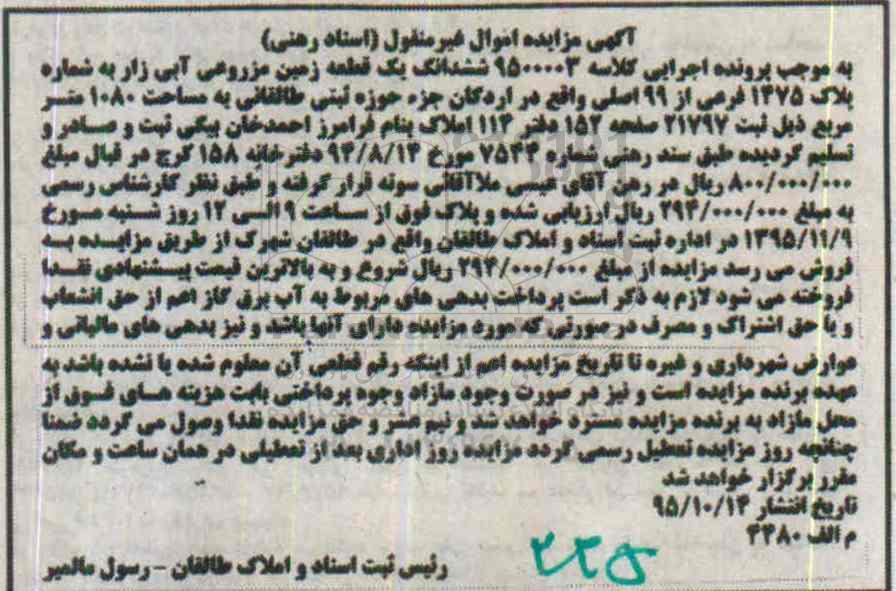 آگهی مزایده اموال غیرمنقول (اسناد رهنی)
به موجب پرونده اجرایی کلاسه ۹۵۰۰۰۰۳ ششدانگ یک قطعه زمین مزروعی آبی زار به شماره
پلاک ۱۴۷۵ فرعی از ۹۹ اصلی واقع در اردکان جزء حوزه ثبتی طالقانی به مساحت ۱۰۸۰ متر
مربع ذیل ثبت ۲۱۷۹۷ صفحه ۱۵۲ دفتر ۱۱۴ املاک بنام فرامرز احمدخان بیگی ثبت و صادر و
تسلیم گردیده طبق سند رهنی شماره ۷۵۴۴ مورخ ۹۴/۸/۱۴ دفترخانه ۱۵۸ کرج در قبال مبلغ
۸۰۰/۰۰۰/۰۰۰ ریال در رهن آقای عیسی ملاآقائی سوته قرار گرفته و طبق نظر کارشناس رسمی
به مبلغ ۲۹۴/۰۰۰/۰۰۰ ریال ارزیابی شده و پلاک فوق از ساعت ۹ الی ۱۲ روز شنبه مورخ
۱۳۹۵/۱۱/۹ در اداره ثبت اسناد و املاک طالقان واقع در طالقان شهرک از طریق مزایده به
فروش می رسد مزایده از مبلغ ۲۹۴/۰۰۰/۰۰۰ ریال شروع و به بالاترین قیمت پیشنهادی نقدا
فروخته می شود لازم به ذکر است پرداخت بدهی های مربوط به آب برق گاز اعم از حق انشعاب
و یا حق اشتراک و مصرف در صورتی که مورد مزایده دارای آنها باشد و نیز بدهی های مالیاتی و
عوارض شهرداری و غیره تا تاریخ مزایده اعم از اینکه رقم قطعی آن معلوم شده یا نشده باشد به
عهده برنده مزایده است و نیز در صورت وجود مازاد وجوه پرداختی بابت هزینه های فوق از
محل مازاد به برنده مزایده مسترد خواهد شد و نیم عشر و حق مزایده نقدا وصول می گردد ضمنا
چنانچه روز مزایده تعطیل رسمی گردد مزایده روز اداری بعد از تعطیلی در همان ساعت و مکان
مقرر برگزار خواهد شد
تاریخ انتشار ۹۵/۱۰/۱۴
م الف ۴۴۸۰
رئیس ثبت اسناد و املاک طالقان - رسول مالمیر